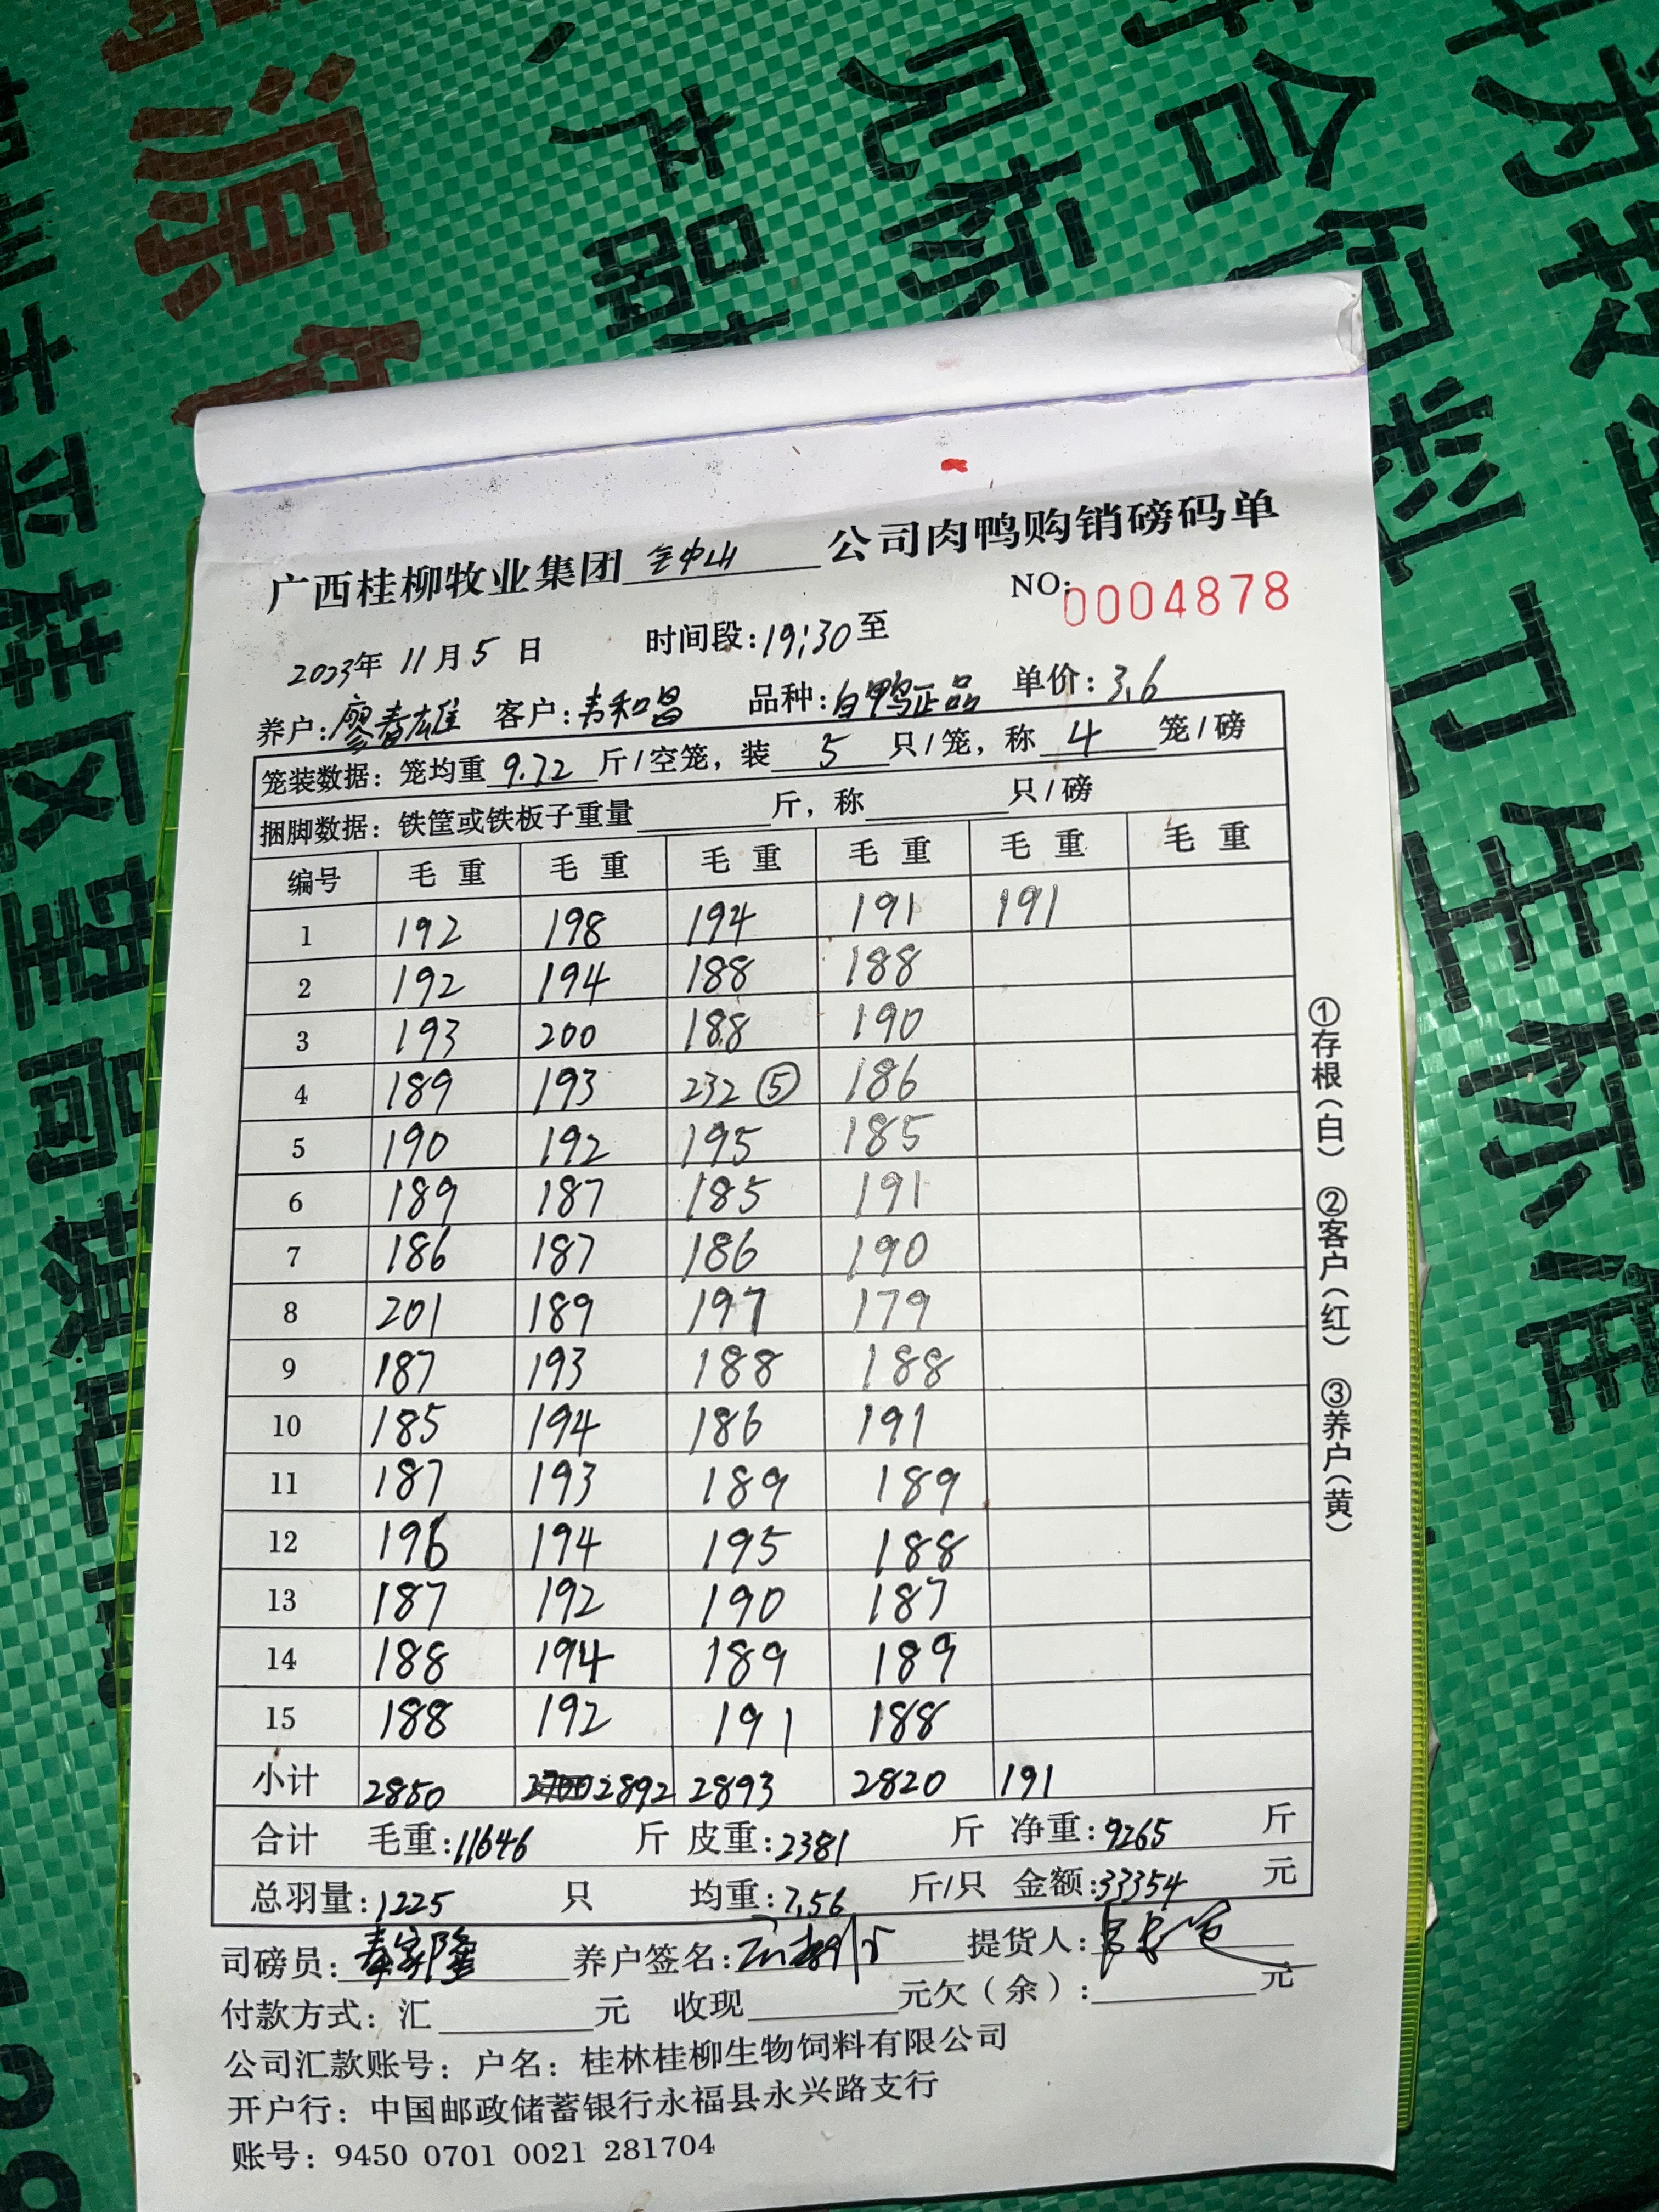 广西桂柳牧业集团 全中山 公司肉鸭购销磅码单
NO:0004878
2023年 11月 5 日 时间段:19:30至
养户:廖春雄 客户:韦和昌 品种:白鸭正品 单价:3.6
笼装数据:笼均重 9.72 斤/空笼,装 5 只/笼,称 4 笼/磅
捆脚数据:铁筐或铁板子重量 斤,称 只/磅
编号 毛重 毛重 毛重 毛重 毛重 毛重
1 192 198 194 191 191
2 192 194 188 188
3 193 200 188 190
4 189 193 232 ⑤ 186
5 190 192 195 185
6 189 187 185 191
7 186 187 186 190
8 201 189 197 179
9 187 193 188 188
10 185 194 186 191
11 187 193 189 189
12 196 194 195 188
13 187 192 190 187
14 188 194 189 189
15 188 192 191 188
小计 2850 2892 2893 2820 191
合计 毛重:11646 斤 皮重:2381 斤 净重:9265 斤
总羽量:1225 只 均重:7.56 斤/只 金额:33354 元
司磅员:秦家隆 养户签名: 提货人:
付款方式:汇 元 收现 元欠(余): 元
公司汇款账号:户名:桂林桂柳生物饲料有限公司
开户行:中国邮政储蓄银行永福县永兴路支行
账号:9450 0701 0021 281704
①存根(白) ②客户(红) ③养户(黄)